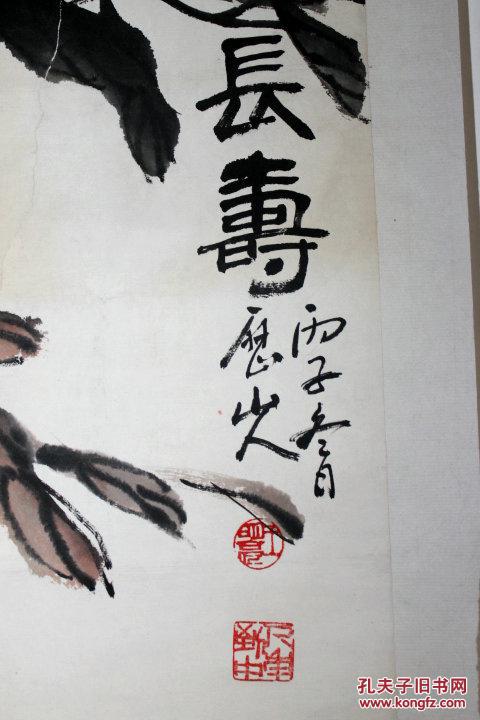 長壽
丙子冬日
歷山人
孔夫子旧书网
www.kongfz.com